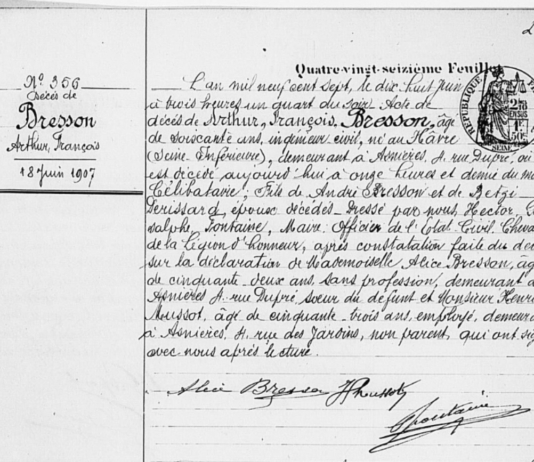 Quatre-vingt-seizième Feuillet
Nº 356
Décès de
Bresson
Arthur, François
18 Juin 1907
L'an mil neuf cent sept, le dix huit Juin
à trois heures un quart du soir Acte de
décès de Arthur, François, Bresson, âgé
de soixante ans, ingénieur civil, né au Hâvre
(Seine Inférieure), demeurant à Asnières, 4. rue Dupré, où
est décédé aujourd'hui à onze heures et demie du
Célibataire; Fils de André Bresson et de Betzi
Derissard, époux décédés. Dressé par nous, Hector,
Fontaine, Maire. Officier de l'Etat-Civil
de la Légion d'Honneur, après constatation faite du
sur la déclaration de Mademoiselle Alice Bresson,
de cinquante-deux ans, sans profession, demeurant à
Asnières 4. rue Dupré soeur du défunt et Monsieur Henri
Moussot, âgé de cinquante-trois ans, employé,
à Asnières, 4. rue des Jardins, non parent, qui ont
avec nous après lecture.
Alice Bresson